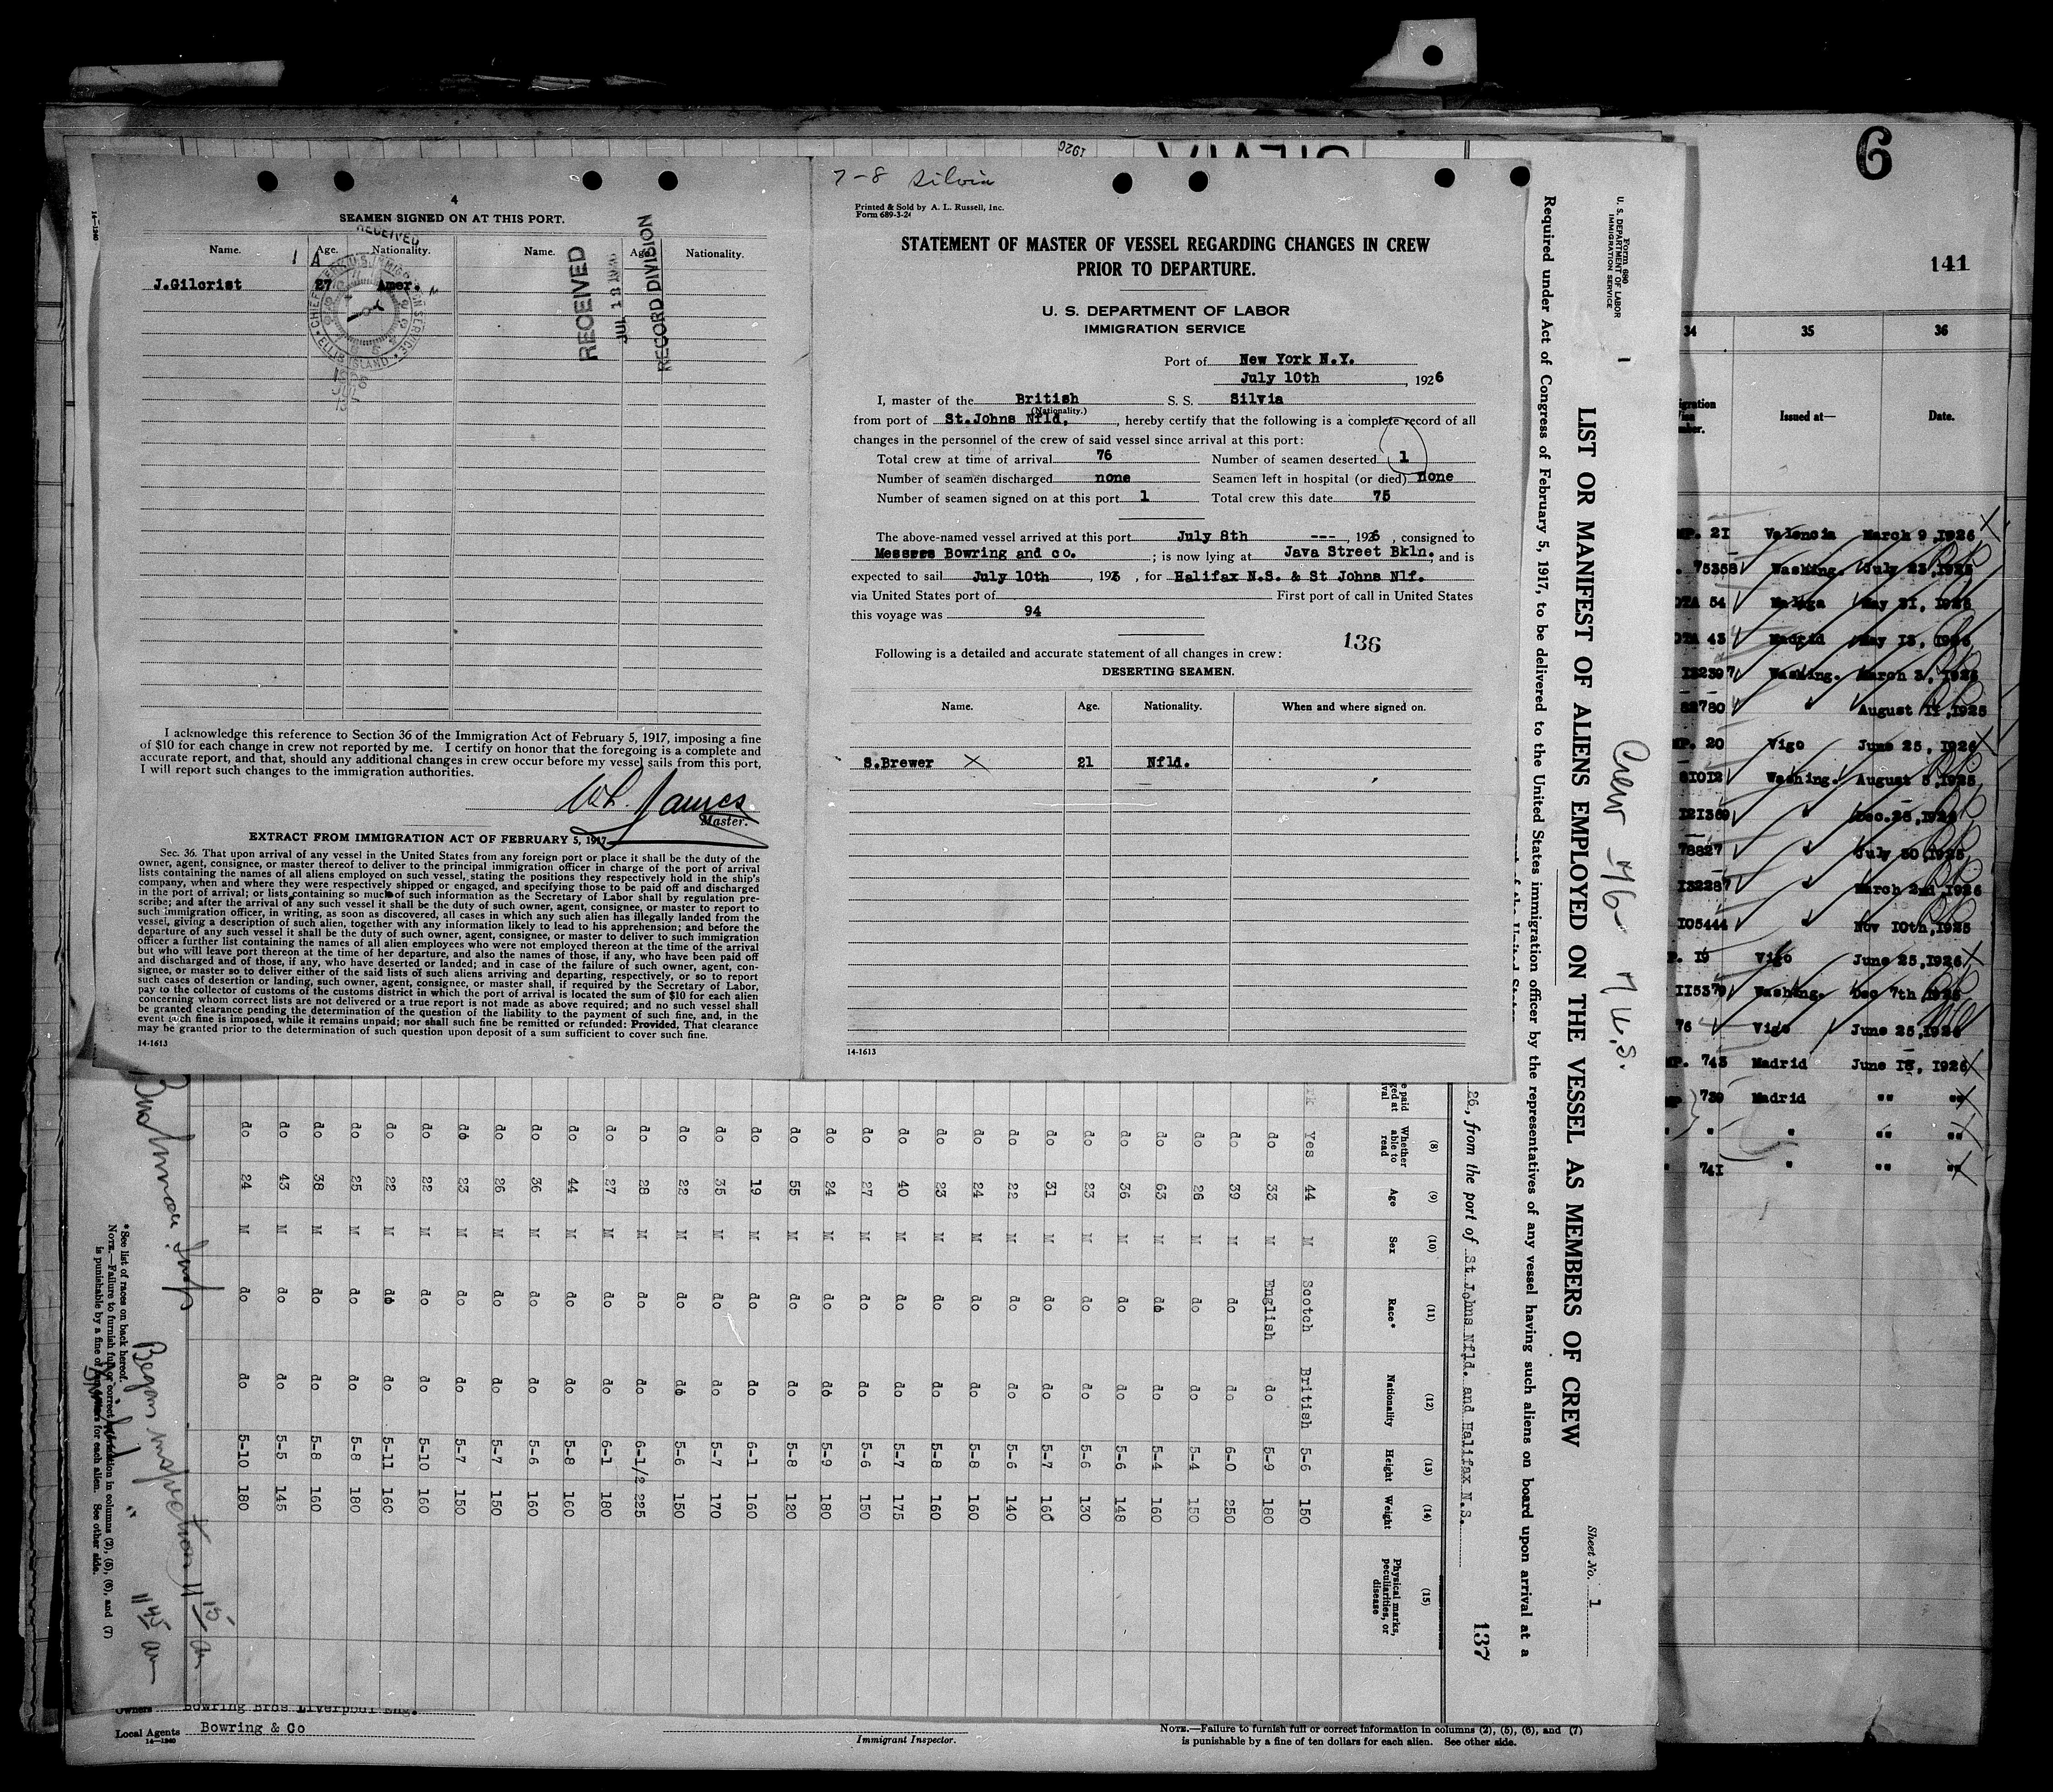 6
141
34 35 36
Issued at— Date.
21 Valencia March 9,1926
75358 Washing. July 23,1925
54 Malaga May 21, 1925
43 Madrid May 13, 1926
132397 Washing. March 3, 1926
82780 " August 11,1925
20 Vigo June 25, 1926
81012 Washing. August 5,1925
121369 " Dec.23,1925
78827 " July 30,1925
132287 " March 2nd,1926
105444 " Nov 10th,1925
19 Vigo June 25,1926
115379 Washing. Dec 7th 1925
76 Vigo June 25,1926
743 Madrid June 18, 1926
739 Madrid " "
" " " "
741 " " "
1926
7-8 Silvia
14-1240
4
SEAMEN SIGNED ON AT THIS PORT.
Name. Age. Nationality. Name. Age. Nationality.
J.Gilcrist 27 Amer.
RECEIVED
RECEIVED
JUL 12 1926
RECORD DIVISION
ELLIS ISLAND
I acknowledge this reference to Section 36 of the Immigration Act of February 5, 1917, imposing a fine
of $10 for each change in crew not reported by me. I certify on honor that the foregoing is a complete and
accurate report, and that, should any additional changes in crew occur before my vessel sails from this port,
I will report such changes to the immigration authorities.
James
Master.
EXTRACT FROM IMMIGRATION ACT OF FEBRUARY 5, 1917
Sec. 36. That upon arrival of any vessel in the United States from any foreign port or place it shall be the duty of the
owner, agent, consignee, or master thereof to deliver to the principal immigration officer in charge of the port of arrival
lists containing the names of all aliens employed on such vessel, stating the positions they respectively hold in the ship's
company, when and where they were respectively shipped or engaged, and specifying those to be paid off and discharged
in the port of arrival; or lists containing so much of such information as the Secretary of Labor shall by regulation pre-
scribe; and after the arrival of any such vessel it shall be the duty of such owner, agent, consignee, or master to report to
such immigration officer, in writing, as soon as discovered, all cases in which any such alien has illegally landed from the
vessel, giving a description of such alien, together with any information likely to lead to his apprehension; and before the
departure of any such vessel it shall be the duty of such owner, agent, consignee, or master to deliver to such immigration
officer a further list containing the names of all alien employees who were not employed thereon at the time of the arrival
but who will leave port thereon at the time of her departure, and also the names of those, if any, who have been paid off
and discharged and of those, if any, who have deserted or landed; and in case of the failure of such owner, agent, con-
signee, or master so to deliver either of the said lists of such aliens arriving and departing, respectively, or so to report
such cases of desertion or landing, such owner, agent, consignee, or master shall, if required by the Secretary of Labor,
pay to the collector of customs of the customs district in which the port of arrival is located the sum of $10 for each alien
concerning whom correct lists are not delivered or a true report is not made as above required; and no such vessel shall
be granted clearance pending the determination of the question of the liability to the payment of such fine, and, in the
event such fine is imposed, while it remains unpaid; nor shall such fine be remitted or refunded: Provided, That clearance
may be granted prior to the determination of such question upon deposit of a sum sufficient to cover such fine.
14-1613
Printed & Sold by A. L. Russell, Inc.
Form 689-3-24
STATEMENT OF MASTER OF VESSEL REGARDING CHANGES IN CREW
PRIOR TO DEPARTURE.
U. S. DEPARTMENT OF LABOR
IMMIGRATION SERVICE
Port of New York N.Y.
July 10th, 1926
I, master of the British S. S. Silvia
(Nationality.)
from port of St.Johns Nfld, , hereby certify that the following is a complete record of all
changes in the personnel of the crew of said vessel since arrival at this port:
Total crew at time of arrival 76 Number of seamen deserted 1
Number of seamen discharged none Seamen left in hospital (or died) none
Number of seamen signed on at this port 1 Total crew this date 75
The above-named vessel arrived at this port July 8th ---, 1926, consigned to
Messrs Bowring and co. ; is now lying at Java Street Bkln. and is
expected to sail July 10th, 1926, for Halifax N.S. & St Johns Nlf.
via United States port of First port of call in United States
this voyage was 94
136
Following is a detailed and accurate statement of all changes in crew:
DESERTING SEAMEN.
Name. Age. Nationality. When and where signed on.
S.Brewer X 21 Nfld.
14-1613
Form 680
U. S. DEPARTMENT OF LABOR
IMMIGRATION SERVICE
1
LIST OR MANIFEST OF ALIENS EMPLOYED ON THE VESSEL AS MEMBERS OF CREW
Sheet No. 1
Required under Act of Congress of February 5, 1917, to be delivered to the United States immigration officer by the representatives of any vessel having such aliens on board upon arrival at a
Crew 76 7 U.S.
26, from the port of St.Johns Nfld. and Halifax N.S.
137
(8) (9) (10) (11) (12) (13) (14) (15)
Whether able to read Age Sex Race* Nationality Height Weight Physical marks, peculiarities, or disease
Yes 44 M Scotch British 5-6 150
do 33 M English do 5-9 180
do 39 M do do 6-0 250
do 26 M do do 5-4 150
do 63 M do do 5-4 160
do 36 M do do 5-6 148
do 23 M do do 5-6 130
do 31 M do do 5-7 160
do 22 M do do 5-6 140
do 24 M do do 5-8 160
do 23 M do do 5-8 160
do 40 M do do 5-7 175
do 27 M do do 5-6 150
do 24 M do do 5-9 180
do 55 M do do 5-8 120
do 19 M do do 6-1 160
do 35 M do do 5-7 170
do 22 M do do 5-6 150
do 28 M do do 6-1/2 225
do 27 M do do 6-1 180
do 44 M do do 5-8 160
do 36 M do do 5-6 160
do 26 M do do 5-7 150
do 23 M do do 5-7 150
do 22 M do do 5-10 160
do 22 M do do 5-11 160
do 25 M do do 5-8 180
do 38 M do do 5-8 160
do 43 M do do 5-5 145
do 24 M do do 5-10 180
Began inspection 11 15 am
11 45 am
*See list of races on back hereof.
NOTE.—Failure to furnish full or correct information in columns (2), (5), (6), and (7)
is punishable by a fine of ten dollars for each alien. See other side.
Owners Bowring Bros Liverpool Eng.
Local Agents Bowring & Co
14-1240
Immigrant Inspector.
NOTE.—Failure to furnish full or correct information in columns (2), (5), (6), and (7)
is punishable by a fine of ten dollars for each alien. See other side.